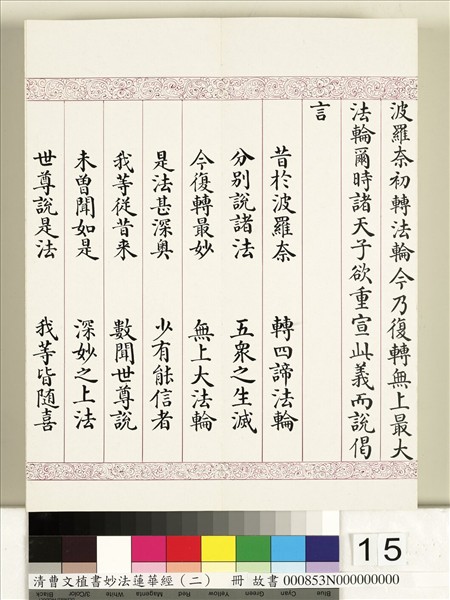 波羅奈初轉法輪今乃復轉無上最大
法輪爾時諸天子欲重宣此義而說偈
言
昔於波羅奈　轉四諦法輪
分別說諸法　五眾之生滅
今復轉最妙　無上大法輪
是法甚深奧　少有能信者
我等從昔来　數聞世尊說
未曾聞如是　深妙之上法
世尊說是法　我等皆隨喜
15
Blue Cyan Green Yellow Red Magenta White 3/Color Black
清曹文植書妙法蓮華經（二）　冊 故書 000853N000000000